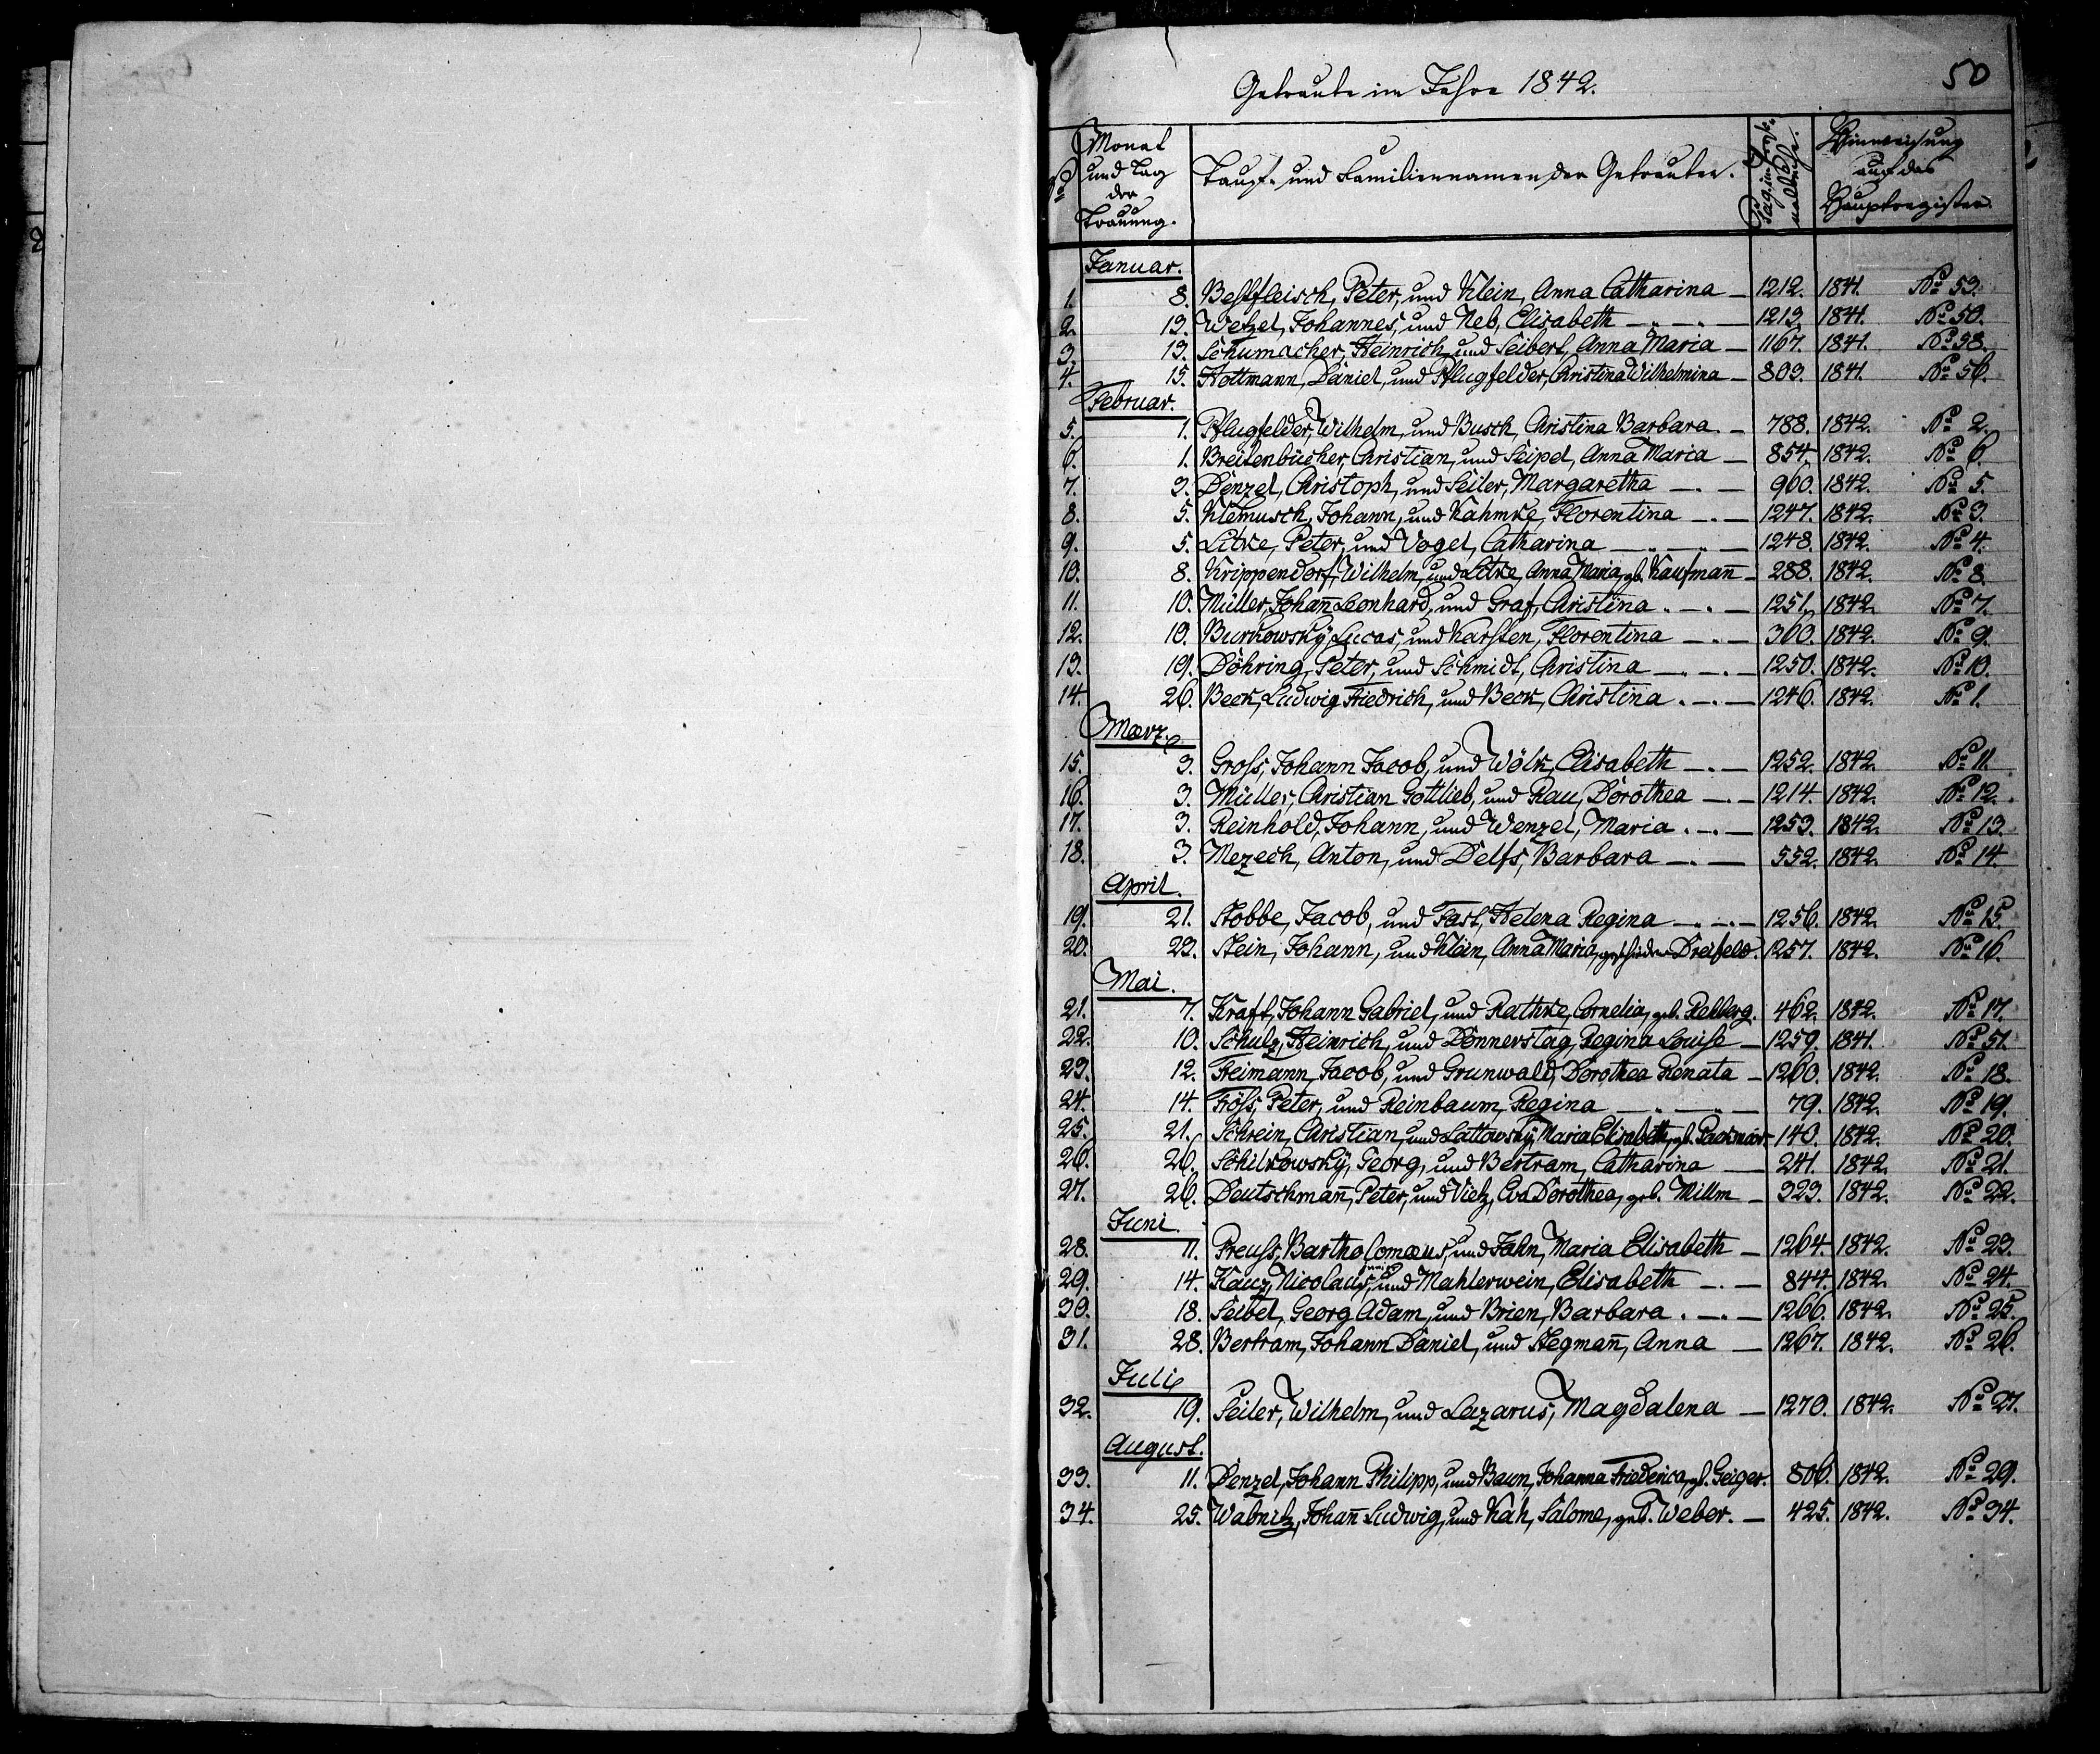 50
Getraute im Jahre 1842.
No
Monat
und Tag
der
Trauung.
Tauf- und Familiennamen der Getrauten.
Hinweisung
auf das
Hauptregister.
Januar.
1. 8. Bestfleisch, Peter, und Klein, Anna Catharina — 1212. 1841. No 53.
2. 13. Wetzel, Johannes, und Neb, Elisabeth — " — " — 1213. 1841. No 50.
3. 13. Schumacher, Heinrich, und Seibert, Anna Maria — 1167. 1841. No 58.
4. 15. Hottmann, Daniel, und Pflugfelder, Christina Wilhelmina — 803. 1841. No 56.
Februar.
5. 1. Pflugfelder, Wilhelm, und Busch, Christina Barbara. — 788. 1842. No 2.
6. 1. Breitenbücher, Christian, und Seipel, Anna Maria — 854. 1842. No 6.
7. 3. Denzel, Christoph, und Seiler, Margaretha — . — 960. 1842. No 5.
8. 5. Klemusch, Johann, und Kahmke, Florentina — . — 1247. 1842. No 3.
9. 5. Litke, Peter, und Vogel, Catharina — " — " — 1248. 1842. No 4.
10. 8. Krippendorf, Wilhelm, und Litke, Anna Maria, gb. Kaufmañ — 288. 1842. No 8.
11. 10. Müller, Johañ Leonhard, und Graf, Christina . — . — 1251. 1842. No 7.
12. 10. Burkowskÿ, Lucas, und Karsten, Florentina — . — 360. 1842. No 9.
13. 19. Döhring, Peter, und Schmidt, Christina — " — . — 1250. 1842. No 10.
14. 26. Beck, Ludwig Friedrich, und Beck, Christina . — . — 1246. 1842. No 1.
Maerz.
15. 3. Gross, Johann Jacob, und Wölk, Elisabeth — . — 1252. 1842. No 11.
16. 3. Müller, Christian Gottlieb, und Rau, Dorothea — . — 1214. 1842. No 12.
17. 3. Reinhold, Johann, und Wenzel, Maria . — . — 1253. 1842. No 13.
18. 3. Mezech, Anton, und Delfs, Barbara — . — 552. 1842. No 14.
April.
19. 21. Stobbe, Jacob, und Fast, Helena Regina — . — . — 1256. 1842. No 15.
20. 23. Stein, Johann, und Klein, Anna Maria, geschiedene Dreifeld. 1257. 1842. No 16.
Mai.
21. 7. Kraft, Johann Gabriel, und Rathke, Cornelia, geb. Rehberg. 462. 1842. No 17.
22. 10. Schulz, Heinrich, und Donnerstag, Regina Louise — 1259. 1841. No 51.
23. 12. Freimann, Jacob, und Grunwald, Dorothea Renata — 1260. 1842. No 18.
24. 14. Fröss, Peter, und Reinbaum, Regina — " — " — 79. 1842. No 19.
25. 21. Schrein, Christian, und Lattowskÿ, Maria Elisabeth, gb. — 140. 1842. No 20.
26. 26. Schilkowskÿ, Georg, und Bertram, Catharina — 241. 1842. No 21.
27. 26. Deutschmañ, Peter, und Vietz, Eva Dorothea, geb. Millm — 323. 1842. No 22.
Juni.
28. 11. Preuss, Bartholomæus, und Jahn, Maria Elisabeth — 1264. 1842. No 23.
29. 14. Kauz, Nicolaus, und Mahlerwein, Elisabeth — . — 844. 1842. No 24.
30. 18. Seibel, Georg Adam, und Brien, Barbara . — . — 1266. 1842. No 25.
31. 28. Bertram, Johann Daniel, und Hegmañ, Anna — 1267. 1842. No 26.
Juli
32. 19. Seiler, Wilhelm, und Lazarus, Magdalena — 1270. 1842. No 27.
August.
33. 11. Denzel, Johann Philipp, und Baun, Johanna Friederica, gb. Geiger. 806. 1842. No 29.
34. 25. Wabnitz, Johañ Ludwig, und Kah, Salome, geb. Weber. — 425. 1842. No 34.